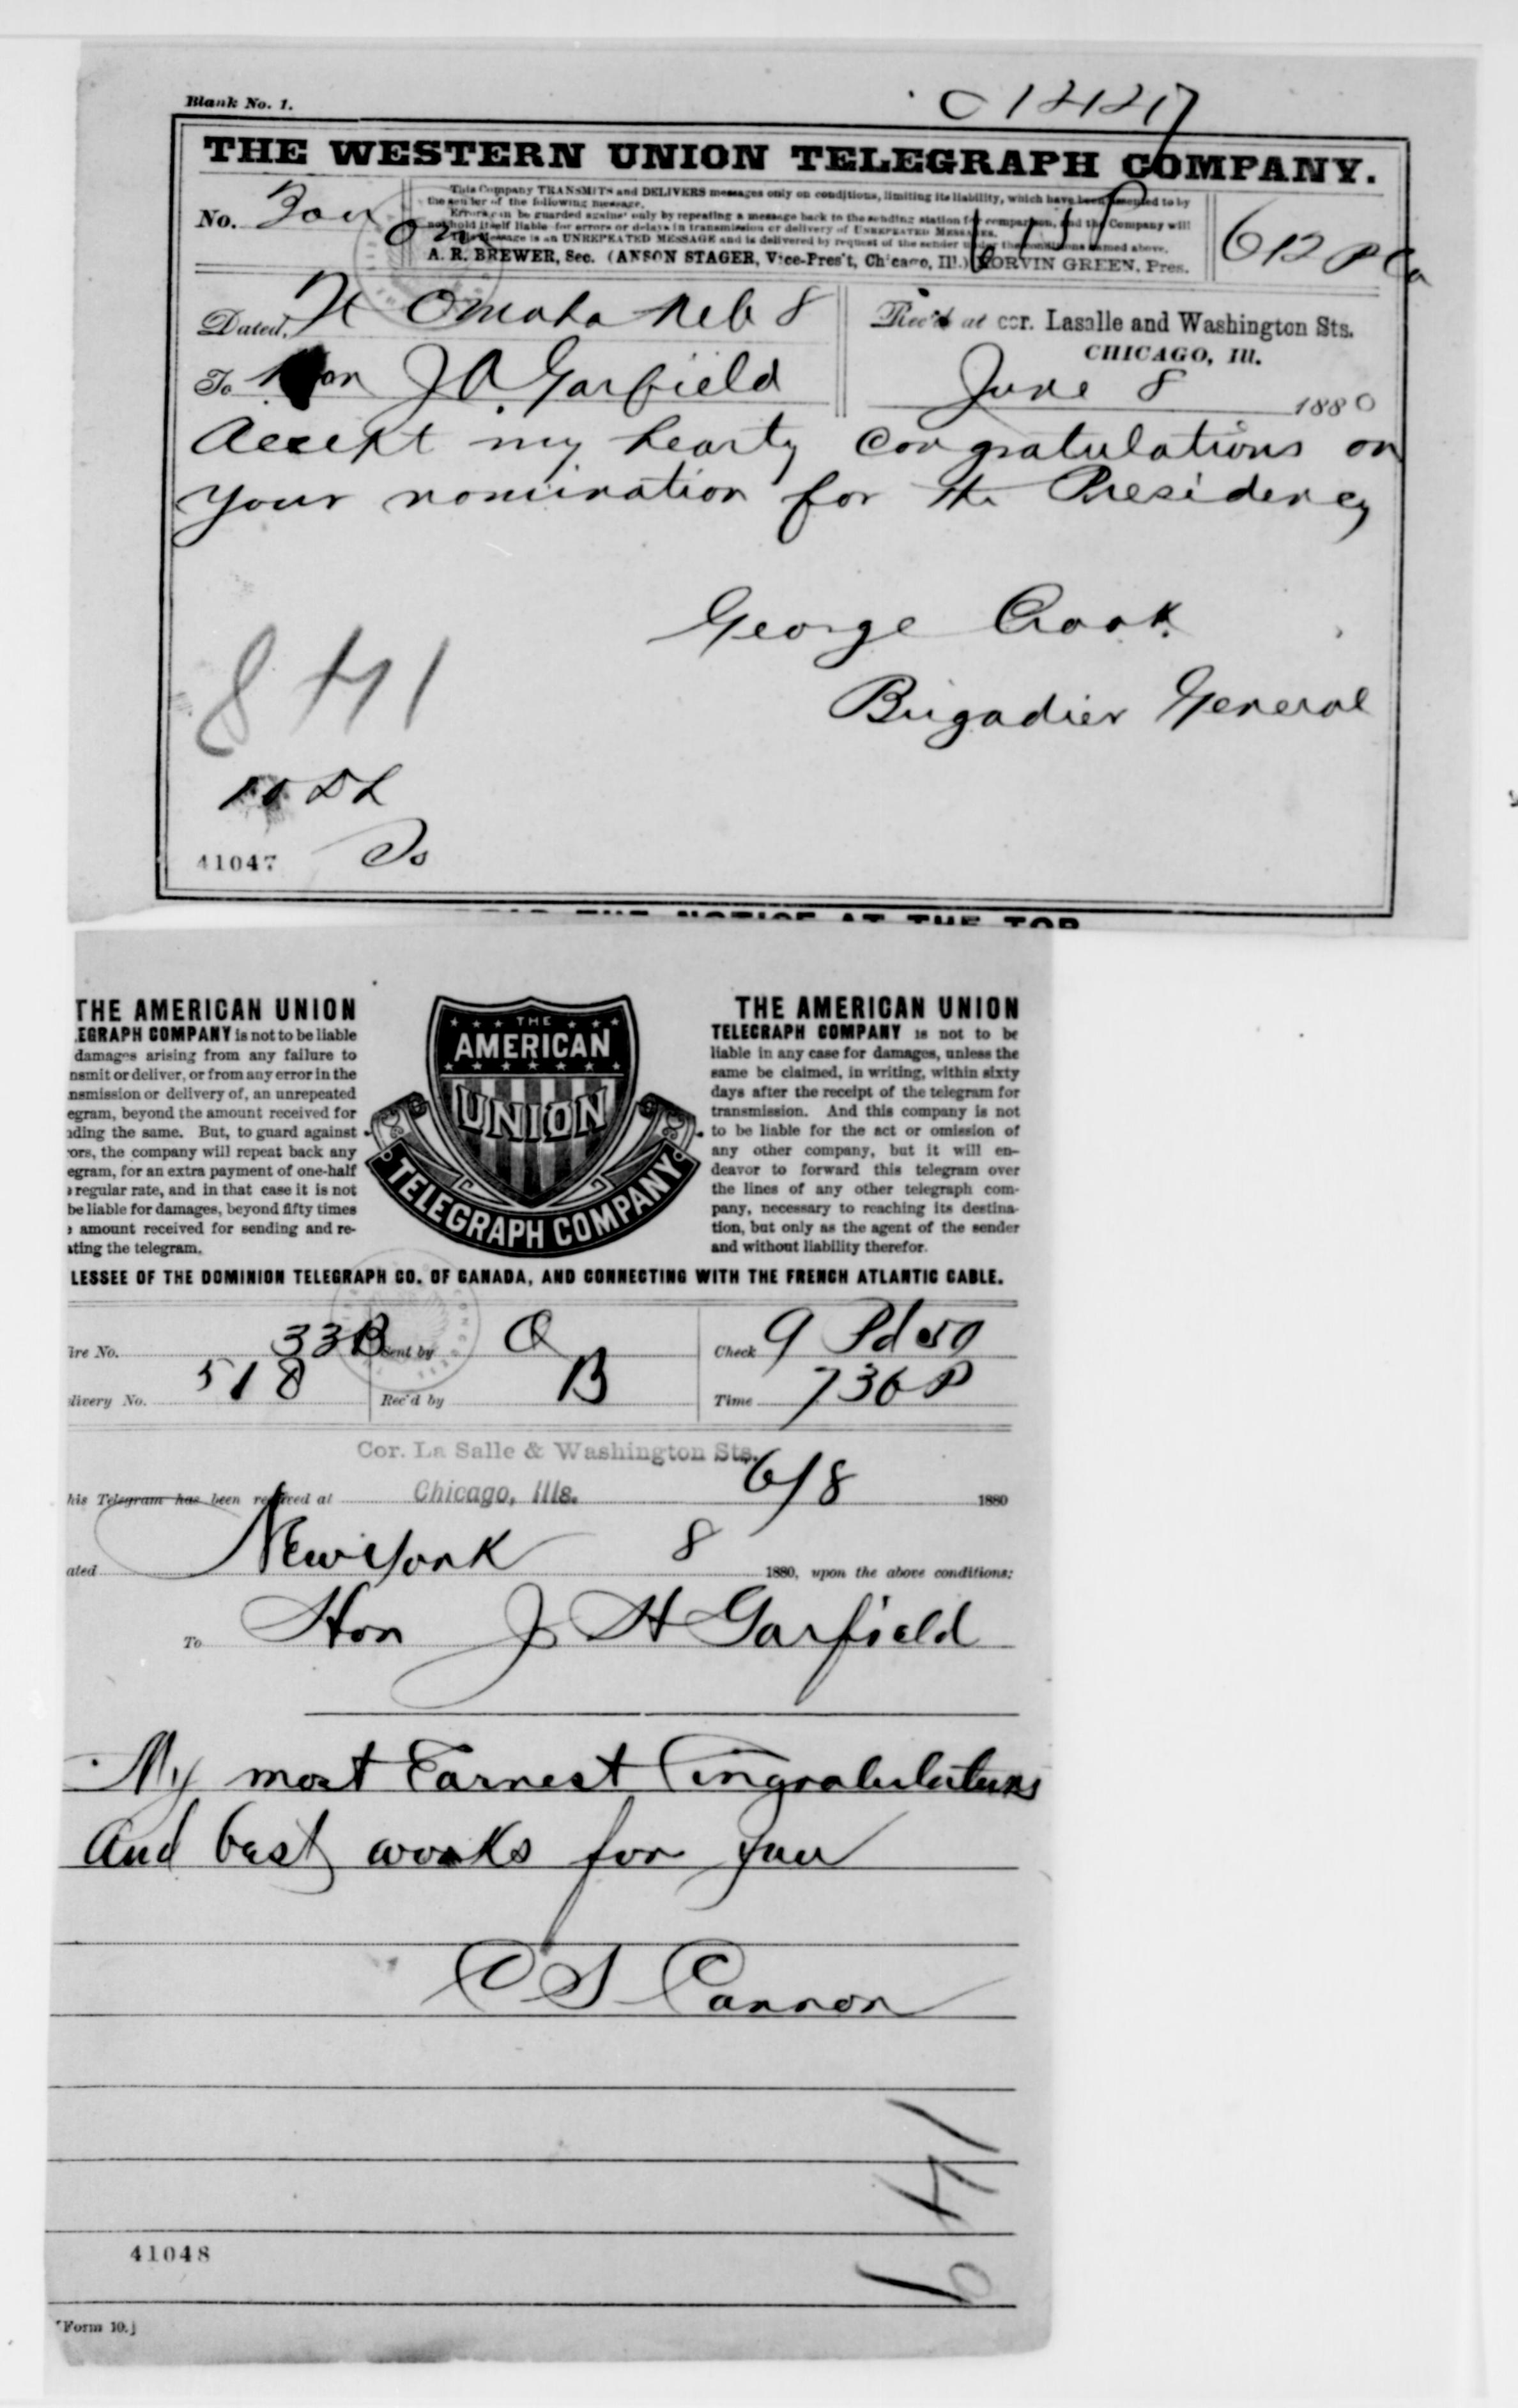 Blank No. 1.
THE WESTERN UNION TELEGRAPH COMPANY.
No.
This Company TRANSMITS and DELIVERS messages only on conditions, limiting its liability, which have been assented to by
the sender of the following message.
Errors can be guarded against only by repeating a message back to the sending station for comparison, and the Company will
not hold itself liable for errors or delays in transmission or delivery of UNREPEATED MESSAGES.
This message is an UNREPEATED MESSAGE and is delivered by request of the sender under the conditions named above.
A. R. BREWER, Sec. (ANSON STAGER, Vice-Pres't, Chicago, Ill.) NORVIN GREEN, Pres.
612 P
Dated, Ft Omaha Neb 8
Rec'd at cor. Lasalle and Washington Sts.
CHICAGO, Ill.
June 8 1880
To Hon J A Garfield
Accept my hearty congratulations on
your nomination for the Presidency
George Crook
Brigadier General
41047
READ THE NOTICE AT THE TOP
THE AMERICAN UNION
EGRAPH COMPANY is not to be liable
damages arising from any failure to
nsmit or deliver, or from any error in the
nsmission or delivery of, an unrepeated
egram, beyond the amount received for
ding the same. But, to guard against
ors, the company will repeat back any
egram, for an extra payment of one-half
regular rate, and in that case it is not
be liable for damages, beyond fifty times
amount received for sending and re-
ating the telegram.
THE AMERICAN UNION TELEGRAPH COMPANY
THE AMERICAN UNION
TELEGRAPH COMPANY is not to be
liable in any case for damages, unless the
same be claimed, in writing, within sixty
days after the receipt of the telegram for
transmission. And this company is not
to be liable for the act or omission of
any other company, but it will en-
deavor to forward this telegram over
the lines of any other telegraph com-
pany, necessary to reaching its destina-
tion, but only as the agent of the sender
and without liability therefor.
LESSEE OF THE DOMINION TELEGRAPH CO. OF CANADA, AND CONNECTING WITH THE FRENCH ATLANTIC CABLE.
ire No. 33B Sent by O Check 9 Pd 50
livery No. 518 Rec'd by B Time 736 P
Cor. La Salle & Washington Sts.
his Telegram has been received at Chicago, Ills. 6/8 1880
ated New York 8 1880, upon the above conditions:
To Hon J H Garfield
My most Earnest Congratulations
And best works for you
C S Cannon
41048
Form 10.]